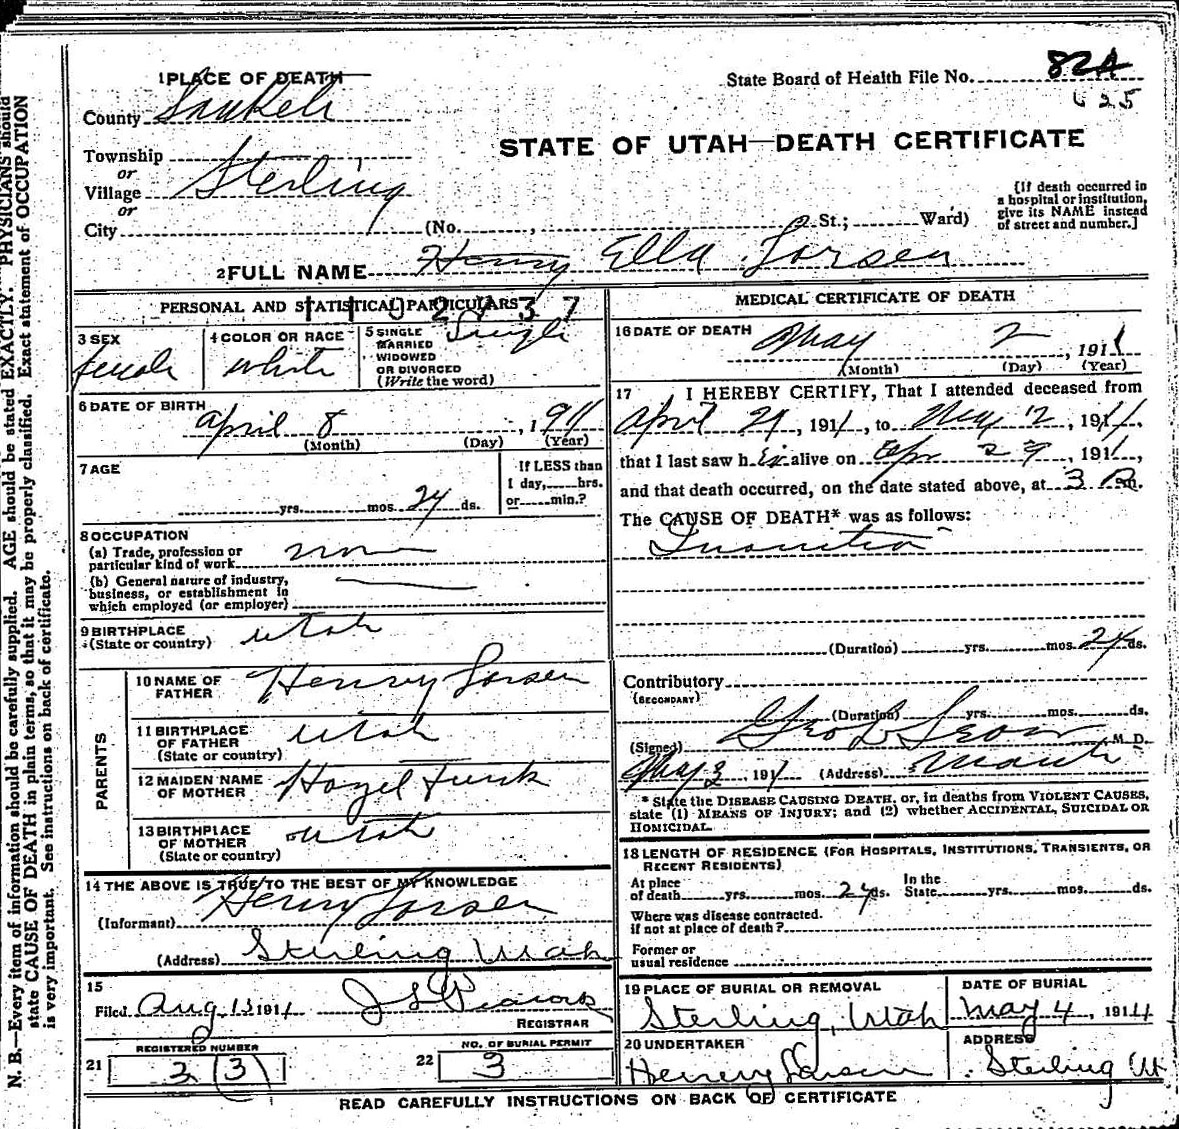 N. B.—Every item of information should be carefully supplied. AGE should be stated EXACTLY. PHYSICIANS should
state CAUSE OF DEATH in plain terms, so that it may be properly classified. Exact statement of OCCUPATION
is very important. See instructions on back of certificate.
1 PLACE OF DEATH
State Board of Health File No. 82A
625
County Sanpete
STATE OF UTAH—DEATH CERTIFICATE
Township
or
Village Sterling
or
City (No. , St.; Ward)
[If death occurred in
a hospital or institution,
give its NAME instead
of street and number.]
2 FULL NAME Henry Ella Larsen
PERSONAL AND STATISTICAL PARTICULARS
MEDICAL CERTIFICATE OF DEATH
3 SEX
female
4 COLOR OR RACE
white
5 SINGLE
MARRIED
WIDOWED
OR DIVORCED
(Write the word)
Single
6 DATE OF BIRTH
April 8, 1911
(Month) (Day) (Year)
7 AGE
yrs. mos. 24 ds.
If LESS than
1 day, hrs.
or min.?
8 OCCUPATION
(a) Trade, profession or
particular kind of work none
(b) General nature of industry,
business, or establishment in
which employed (or employer)
9 BIRTHPLACE
(State or country) Utah
PARENTS
10 NAME OF
FATHER Henry Larsen
11 BIRTHPLACE
OF FATHER
(State or country) Utah
12 MAIDEN NAME
OF MOTHER Hazel Funk
13 BIRTHPLACE
OF MOTHER
(State or country) Utah
14 THE ABOVE IS TRUE TO THE BEST OF MY KNOWLEDGE
(Informant) Henry Larsen
(Address) Sterling Utah
15
Filed Aug 13 1911 J L Peacock
REGISTRAR
REGISTERED NUMBER
21 2 (3)
NO. OF BURIAL PERMIT
22 3
16 DATE OF DEATH
May 2, 1911
(Month) (Day) (Year)
17 I HEREBY CERTIFY, That I attended deceased from
April 29, 1911, to May 2, 1911,
that I last saw her alive on Apr 29, 1911,
and that death occurred, on the date stated above, at 3 Pm.
The CAUSE OF DEATH* was as follows:
Inanition
(Duration) yrs. mos. 24 ds.
Contributory
(SECONDARY)
(Duration) yrs. mos. ds.
(Signed) Geo L M. D.
May 3, 1911 (Address) Manti
* State the DISEASE CAUSING DEATH, or, in deaths from VIOLENT CAUSES,
state (1) MEANS OF INJURY; and (2) whether ACCIDENTAL, SUICIDAL OR
HOMICIDAL.
18 LENGTH OF RESIDENCE (FOR HOSPITALS, INSTITUTIONS, TRANSIENTS, OR
RECENT RESIDENTS)
At place
of death yrs. mos. 24 ds.
In the
State yrs. mos. ds.
Where was disease contracted.
if not at place of death?
Former or
usual residence
19 PLACE OF BURIAL OR REMOVAL
Sterling, Utah
DATE OF BURIAL
May 4, 1911
20 UNDERTAKER
Henry Larsen
ADDRESS
Sterling Ut
READ CAREFULLY INSTRUCTIONS ON BACK OF CERTIFICATE